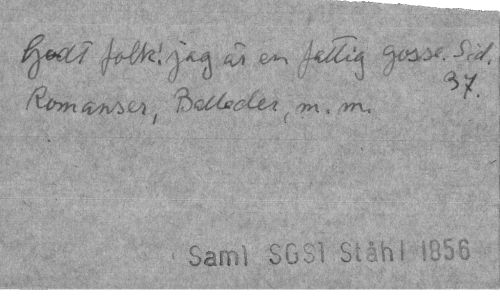 Godt folk! jag är en fattig gosse. Sid.
37.
Romanser, Ballader, m. m.
Saml SGS1 Ståhl 1856